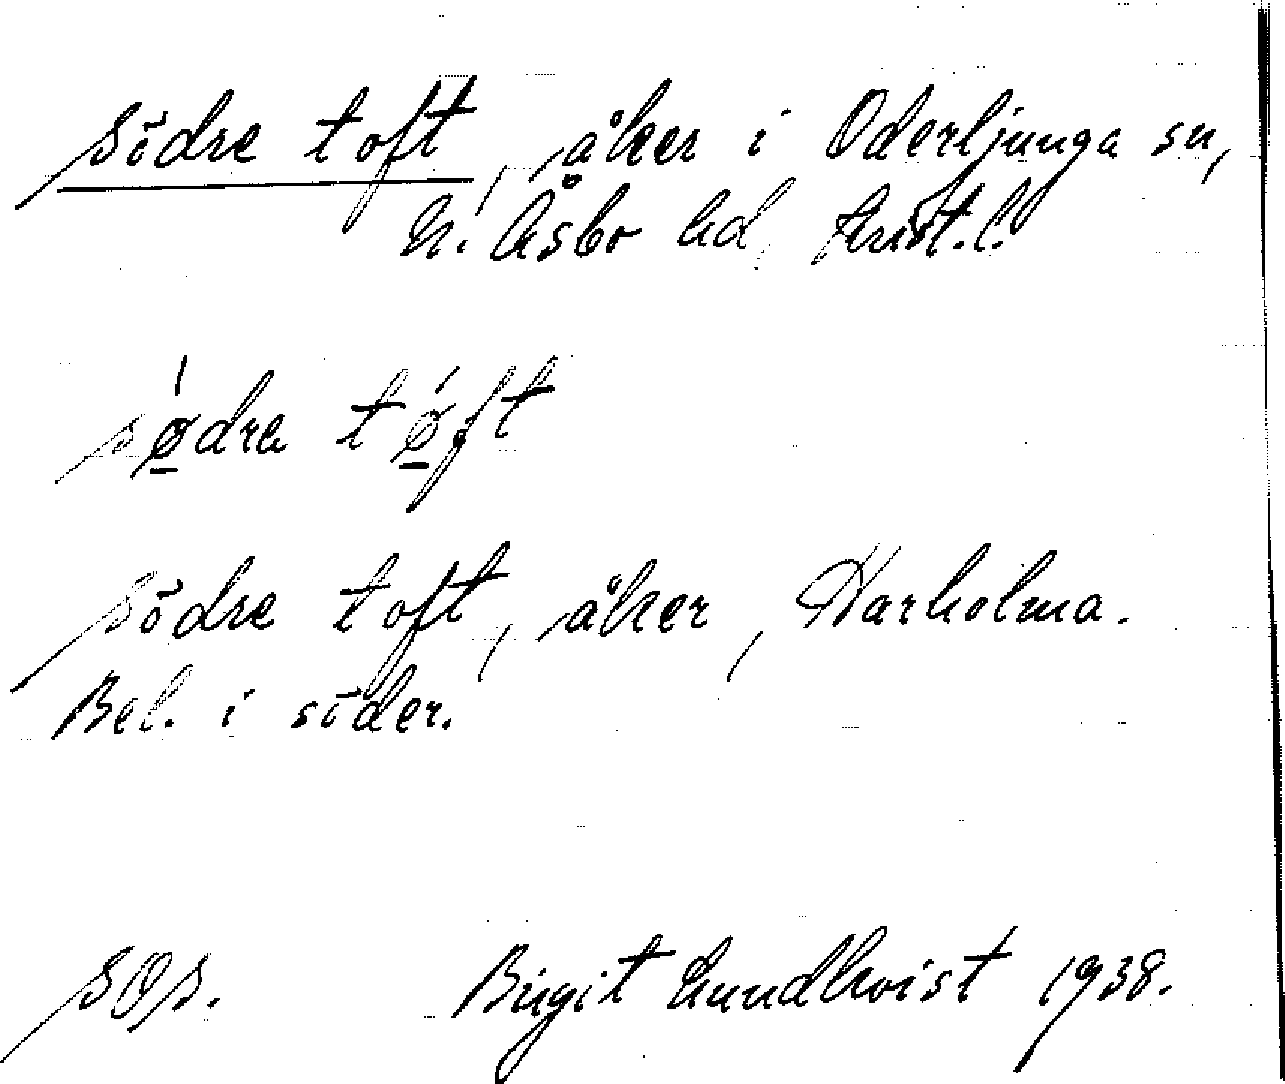 Södre toft, åker i Oderljunga sn,
N. Åsbo hd, Krist. l.
sø̱dra tø̱ft
Södre toft, åker, Harholma.
Bel. i söder.
SOS. Birgit Lundkvist 1938.